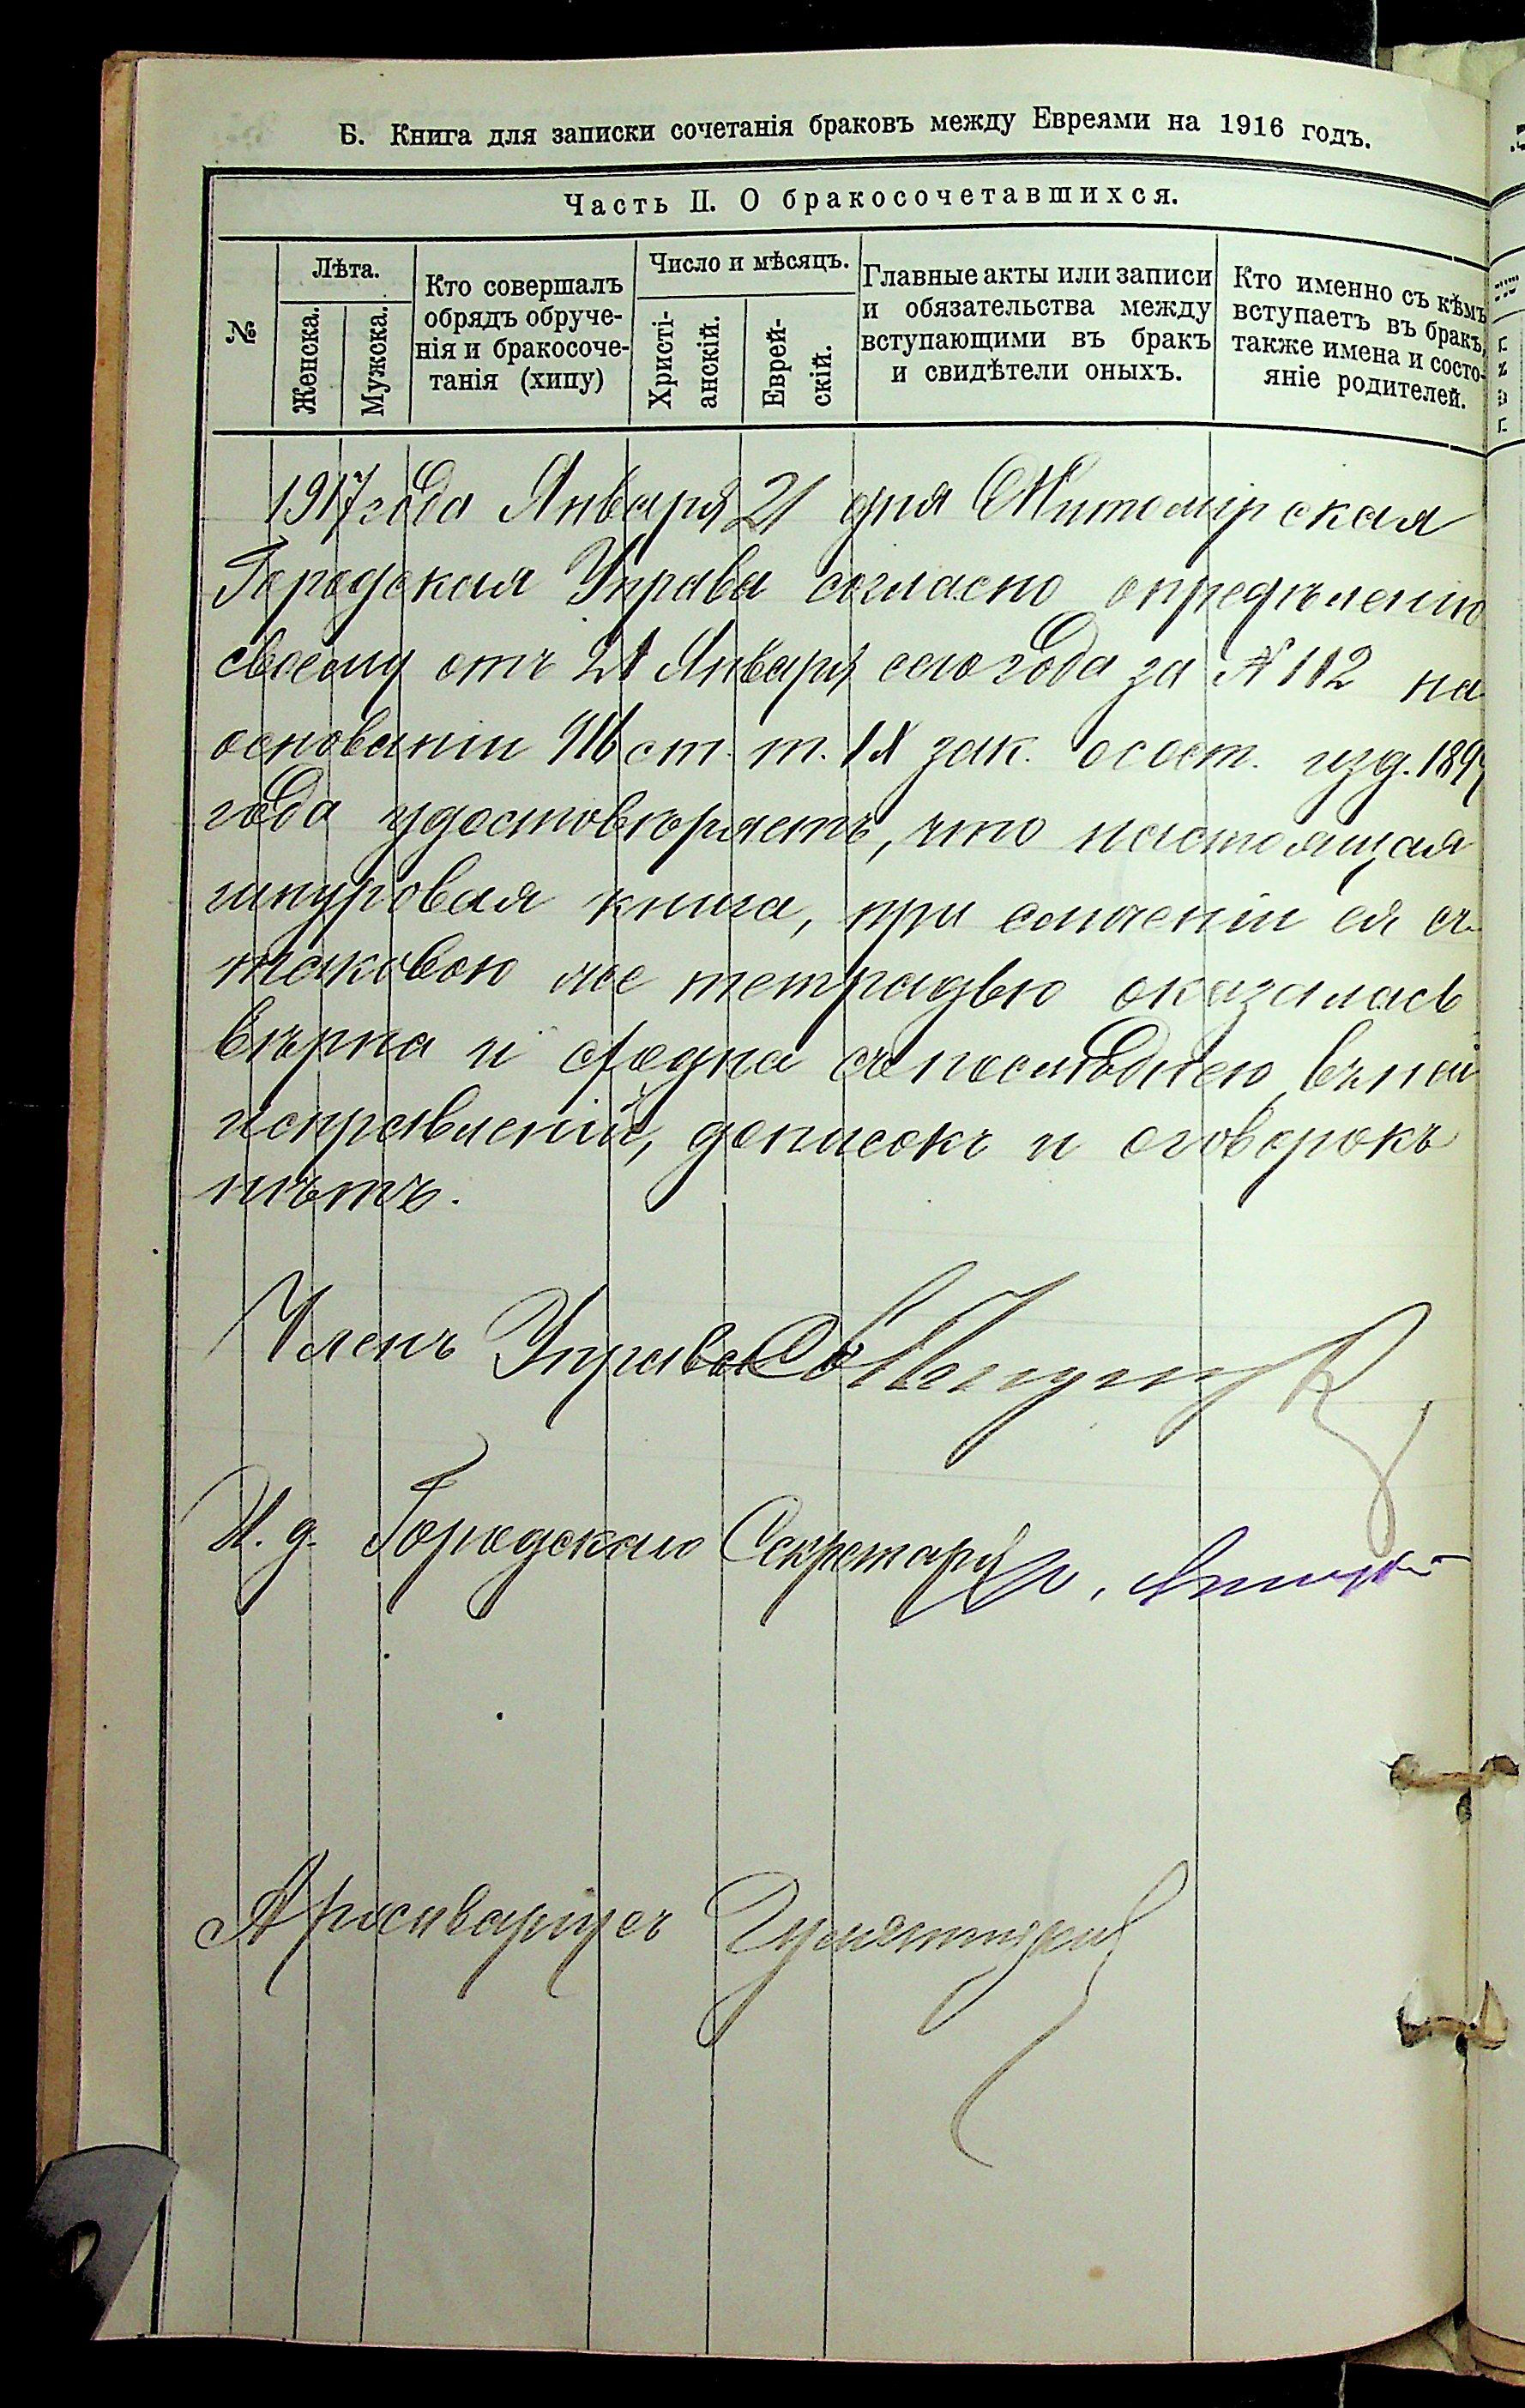 Б. Книга для записки сочетанія браковъ между Евреями на 1916 годъ.
Часть II. О бракосочетавшихся.
№
Лѣта.
Женска.
Мужска.
Кто совершалъ
обрядъ обруче-
нія и бракосоче-
танія (хипу)
Число и мѣсяцъ.
Христі-
анскій.
Еврей-
скій.
Главные акты или записи
и обязательства между
вступающими въ бракъ
и свидѣтели оныхъ.
Кто именно съ кѣмъ
вступаетъ въ бракъ,
также имена и состо-
яніе родителей.
1917 года Января 21 дня Житомірская
Городская Управа согласно опредѣленію
своему отъ 21 Января сего года за № 112 на
основаніи ст. т. IX зак. о сост. изд. 1899
года удостовѣряетъ, что настоящая
шнуровая книга, при сличеніи ея съ
таковою же тетрадью оказалась
вѣрна и сходна съ послѣднею, въ ней
исправленій, дописокъ и оговорокъ
нѣтъ.
Членъ Управы
И. д. Городского Секретаря
Архиваріусъ